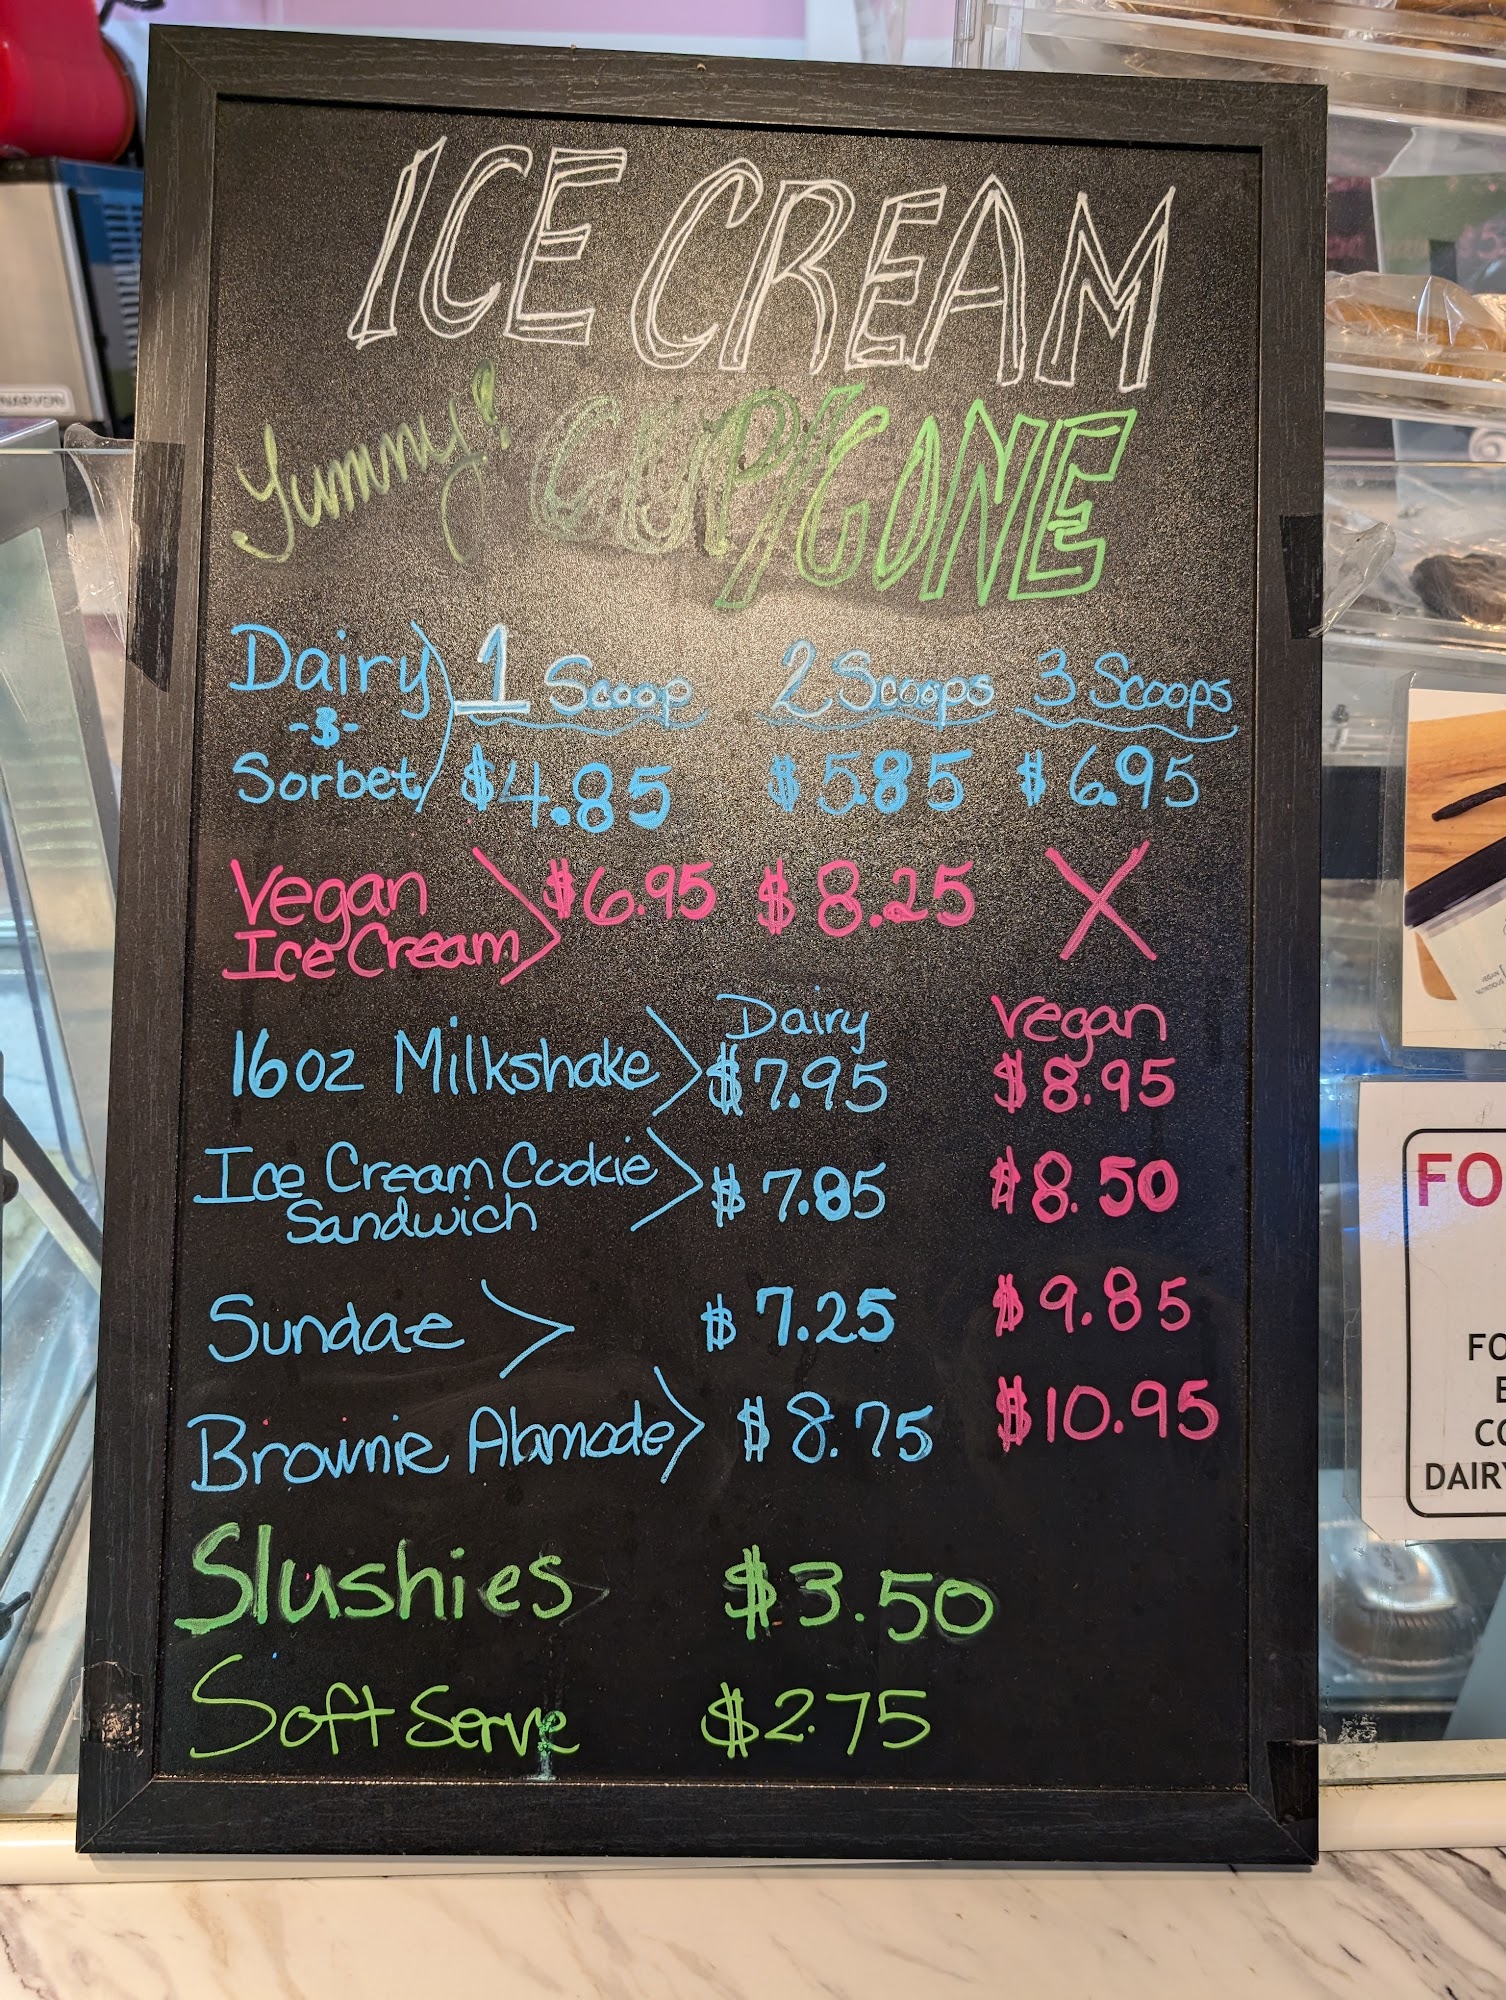 ICE CREAM
Yummy! CUP/CONE
Dairy 1 Scoop 2 Scoops 3 Scoops
-&-
Sorbet $4.85 $5.85 $6.95
Vegan $6.95 $8.25 X
Ice Cream
Dairy Vegan
16oz Milkshake $7.95 $8.95
Ice Cream Cookie $7.85 $8.50
Sandwich
Sundae $7.25 $9.85
Brownie Alamode $8.75 $10.95
Slushies $3.50
Soft Serve $2.75
FO
FO
E
CO
DAIRY